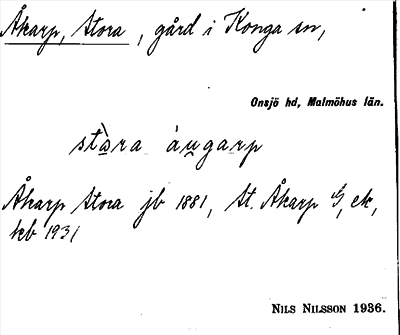 Åkarp, Stora, gård i Konga sn,
Onsjö hd, Malmöhus län.
stàra áugarp
Åkarp Stora jb 1881, St. Åkarp G, ek,
kb 1931
NILS NILSSON 1936.